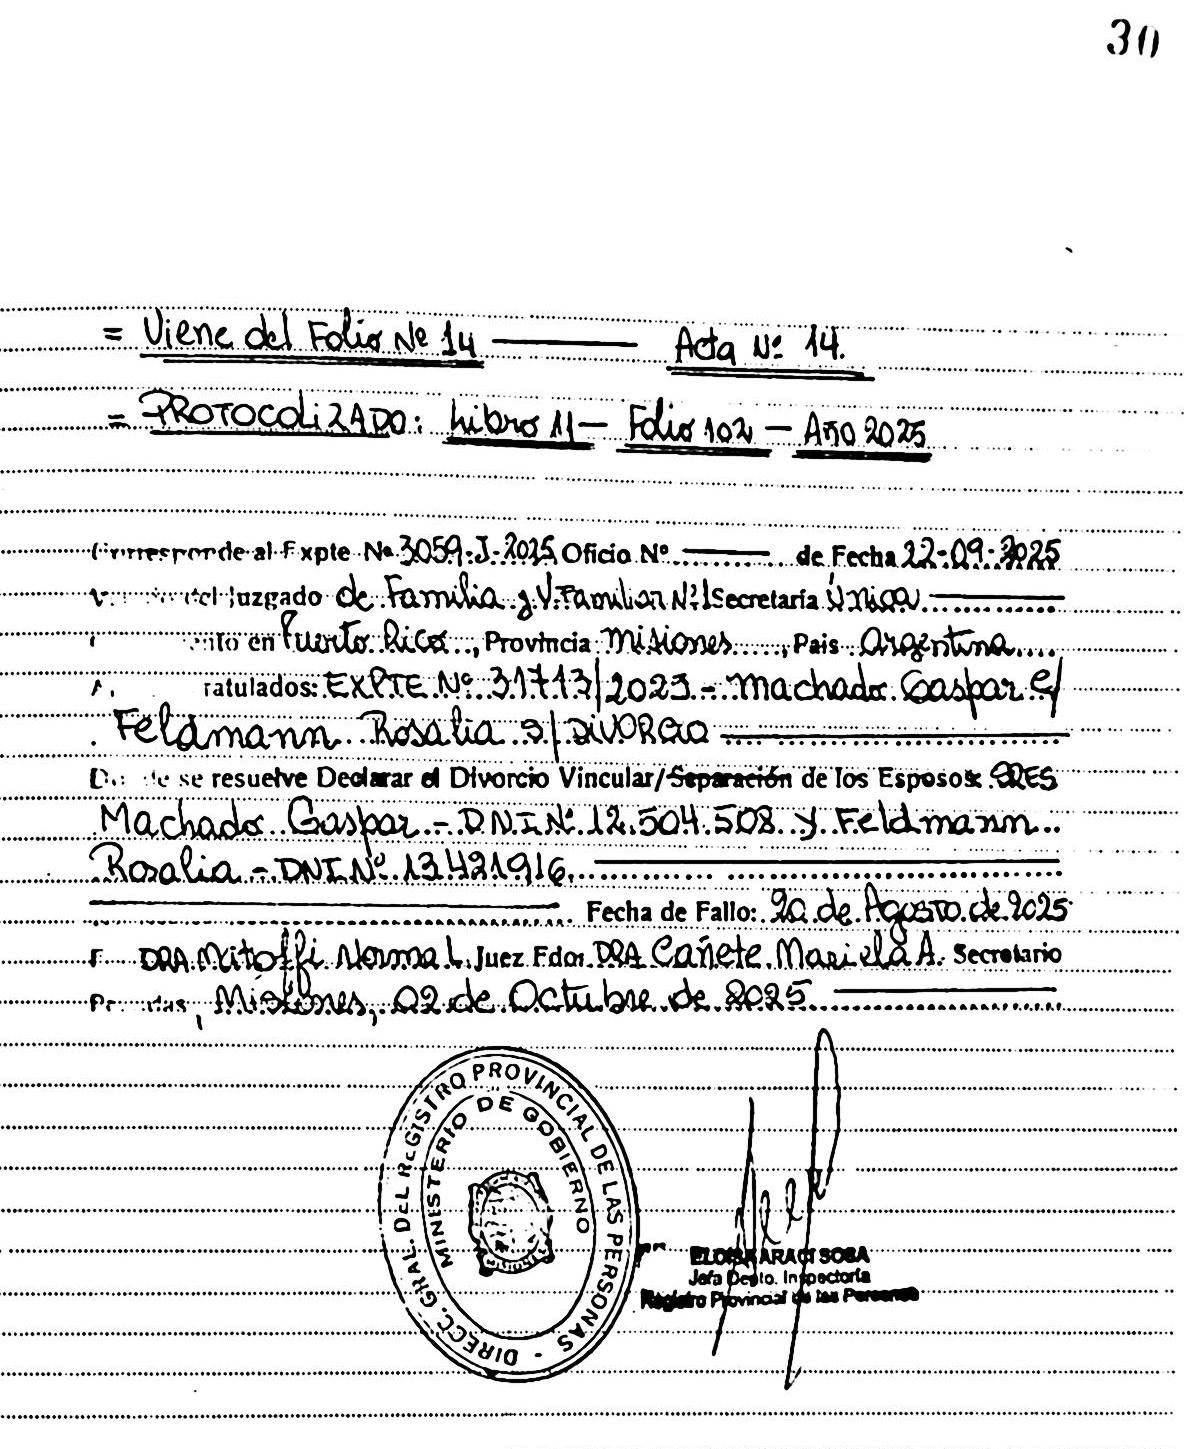 30
= Viene del Folio Nº 14 ——— Acta Nº 14.
= PROTOCOLIZADO: Libro 11 — Folio 102 — Año 2025
Corresponde al Expte Nº 3059-J-2025 Oficio Nº ——— de Fecha 22-09-2025
del Juzgado de Familia y V. Familiar Nº 1 Secretaría Única
en Puerto Rico, Provincia Misiones, Pais Argentina
ratulados: EXPTE Nº 31713/2023 - Machado Gaspar c/
Feldmann Rosalia S/ DIVORCIO
se resuelve Declarar el Divorcio Vincular/Separación de los Esposos: SRES
Machado Gaspar - D.N.I Nº 12.504.508 y Feldmann
Rosalia - DNI Nº 13.421.916.
Fecha de Fallo: 20 de Agosto de 2025
DRA Mitoffi Norma L. Juez Fdo: DRA Cañete Mariela A. Secretario
Misiones, 02 de Octubre de 2025.
DIRECC. GRAL. DEL REGISTRO PROVINCIAL DE LAS PERSONAS -
MINISTERIO DE GOBIERNO
ELOISA ARACI SOSA
Jefa Depto. Inspectoría
Registro Provincial de las Personas